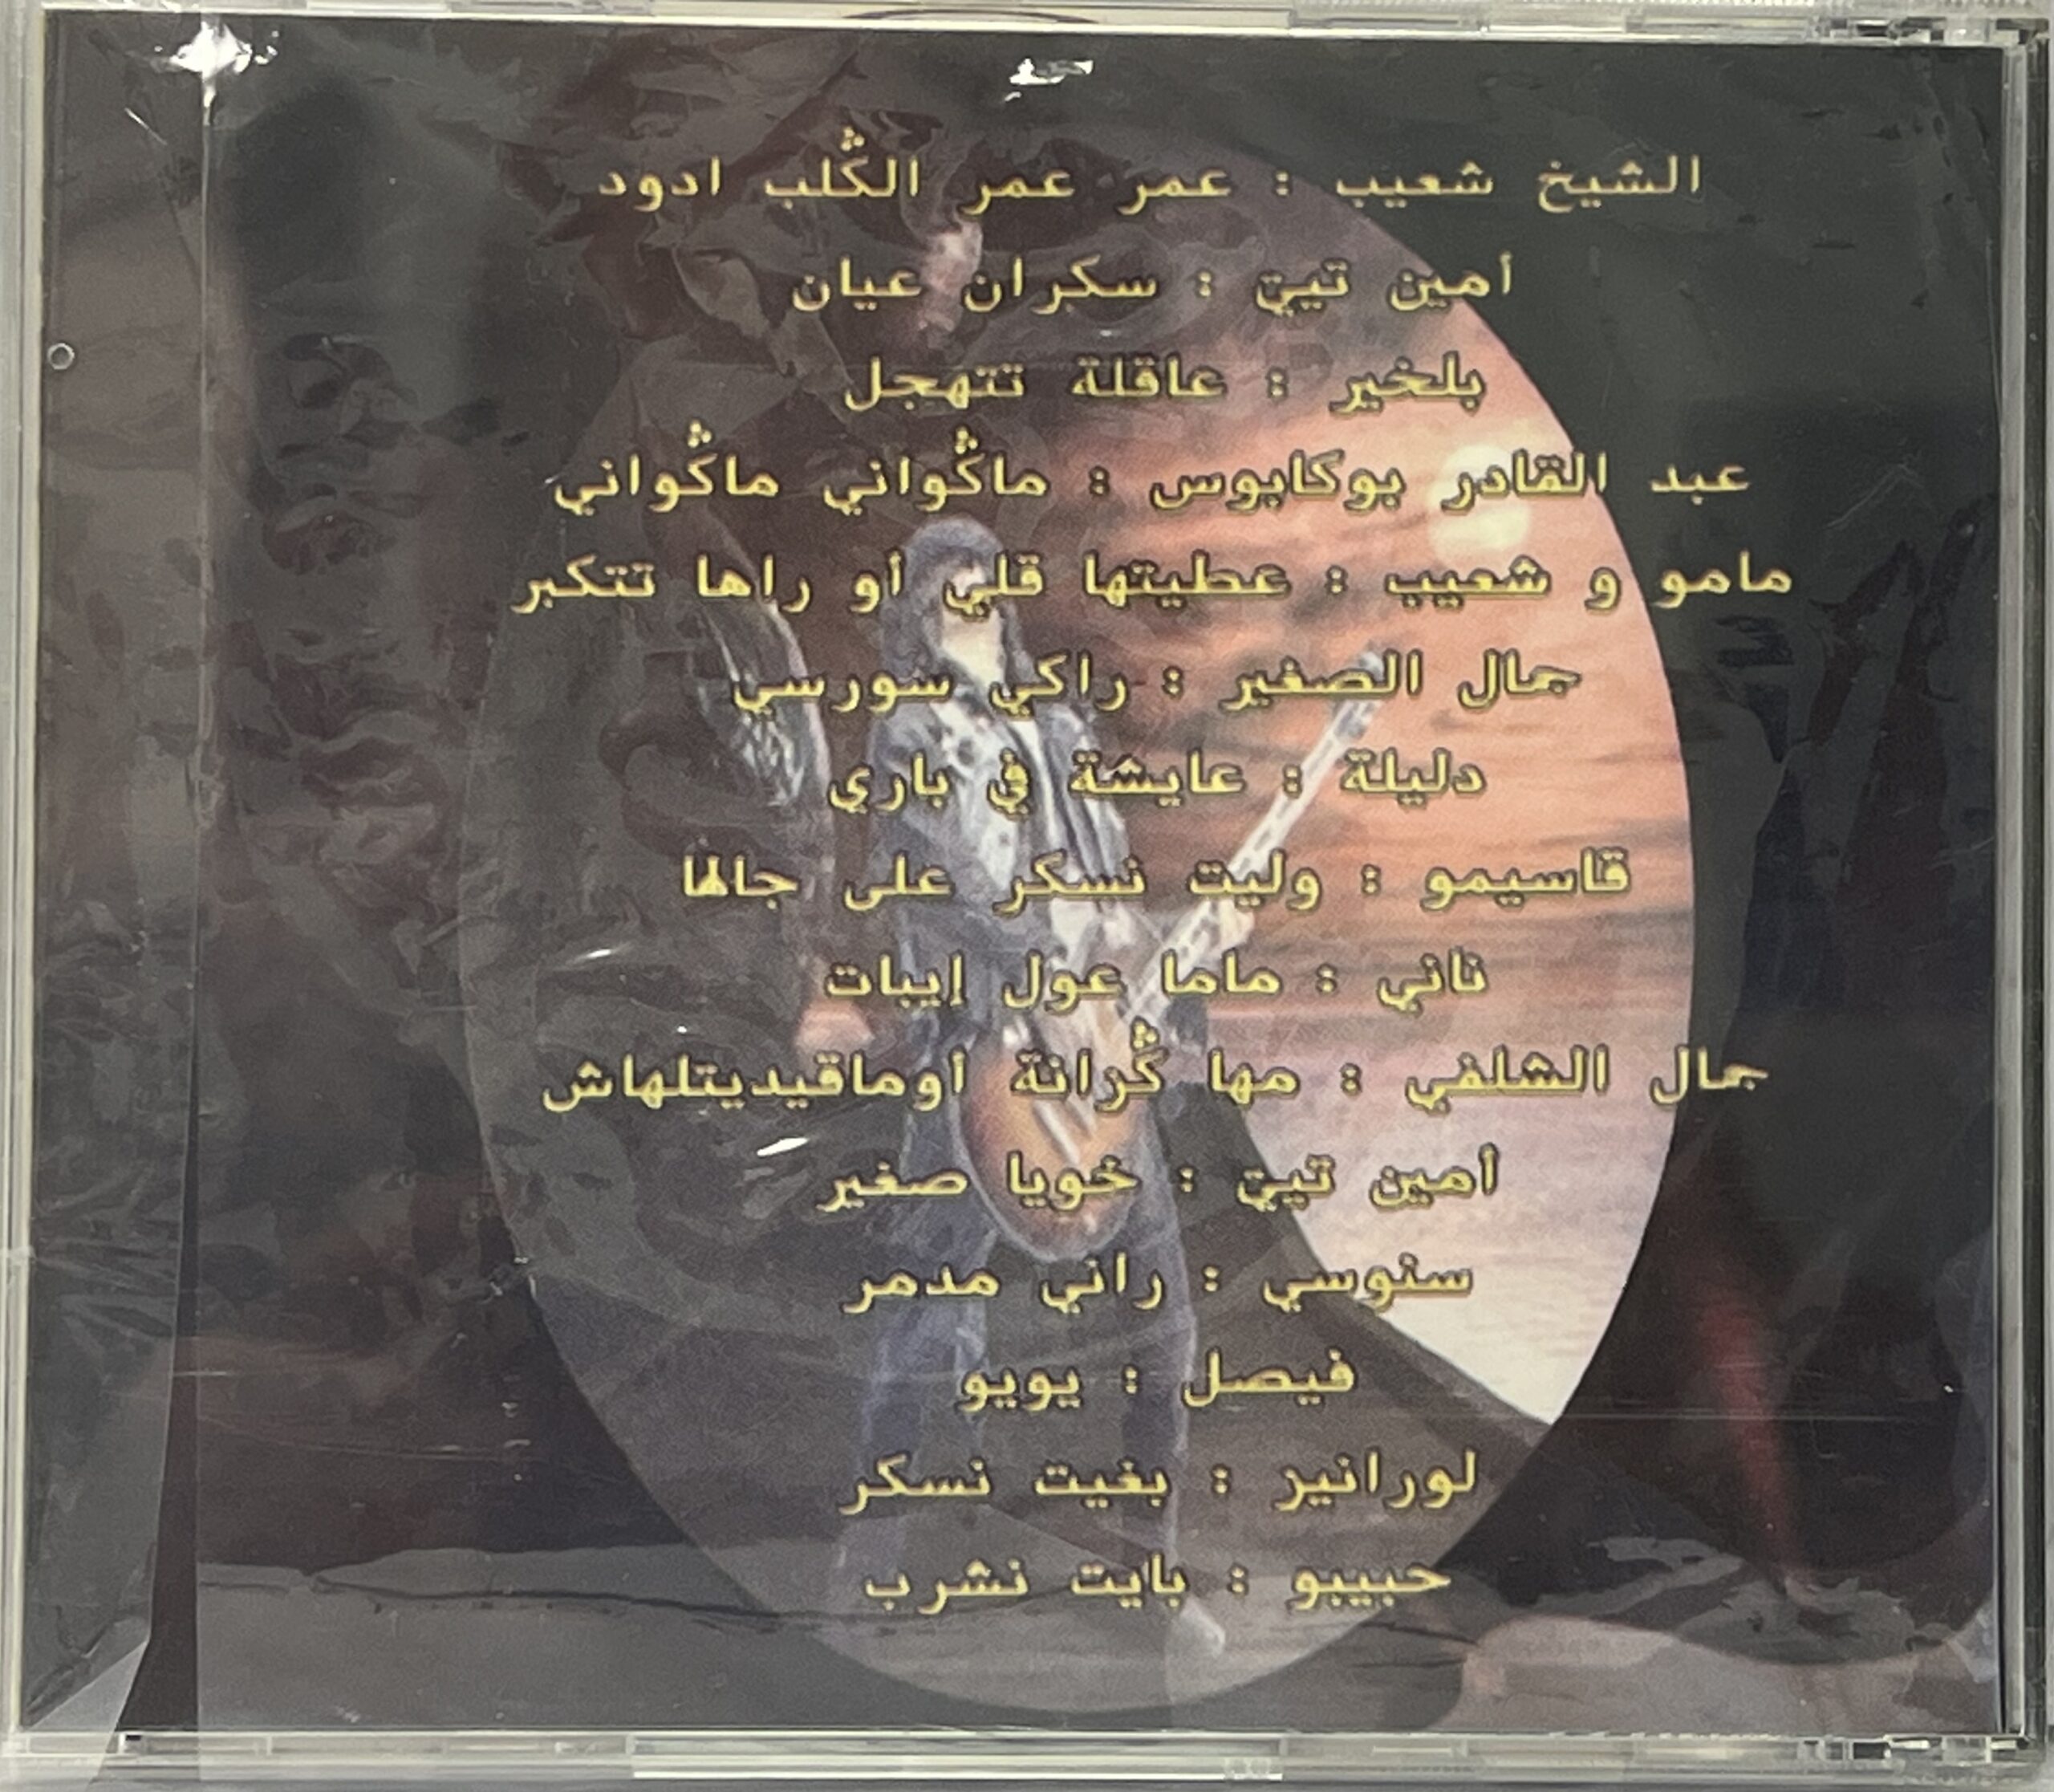 الشيخ شعيب : عمر عمر الڭلب ادود
أمين تيتي : سكران عيان
بلخير : عاقلة تتهجل
عبد القادر بوكابوس : ماڭواني ماڭواني
مامو و شعيب : عطيتها قلبي أو راها تتكبر
جمال الصغير : راكي سورسي
دليلة : عايشة في باري
قاسيمو : وليت نسكر على جالها
ناني : ماما عول إيبات
جمال الشلفي : مها ڭرانة أوماقيديتلهاش
أمين تيتي : خويا صغير
سنوسي : راني مدمر
فيصل : يويو
لورانيز : بغيت نسكر
حبيبو : بايت نشرب